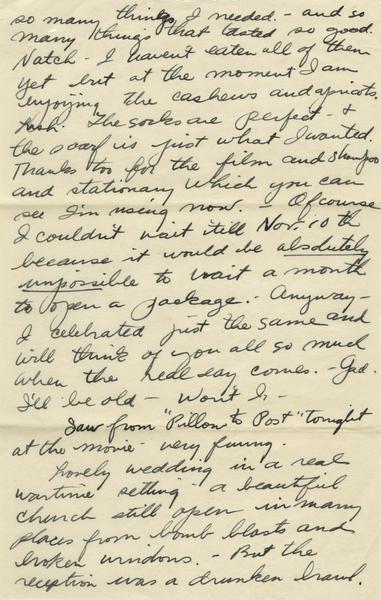 so many things I needed. - and so
many things that tasted so good.
Natch - I haven't eaten all of them
yet but at the moment I am
enjoying the cashews and apricots.
The socks are perfect - &
the scarf is just what I wanted.
Thanks too for the film and shampoo
and stationary which you can
see I'm using now. - Of course
I couldn't wait till Nov. 10 th
because it would be absolutely
unpossible to wait a month
to open a package. - Anyway -
I celebrated just the same and
will think of you all so much
when the real day comes. - Gad.
I'll be old - Won't I -
Saw from "Pillow to Post" tonight
at the movie - very funny.
Lovely wedding in a real
wartime setting - a beautiful
church still open in many
places from bomb blasts and
broken windows. - But the
reception was a drunken brawl.